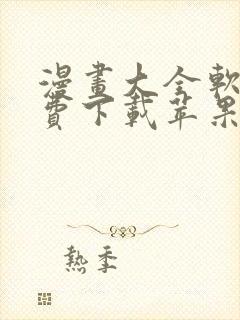 漫畫大全軟
費下載苹果
熱季